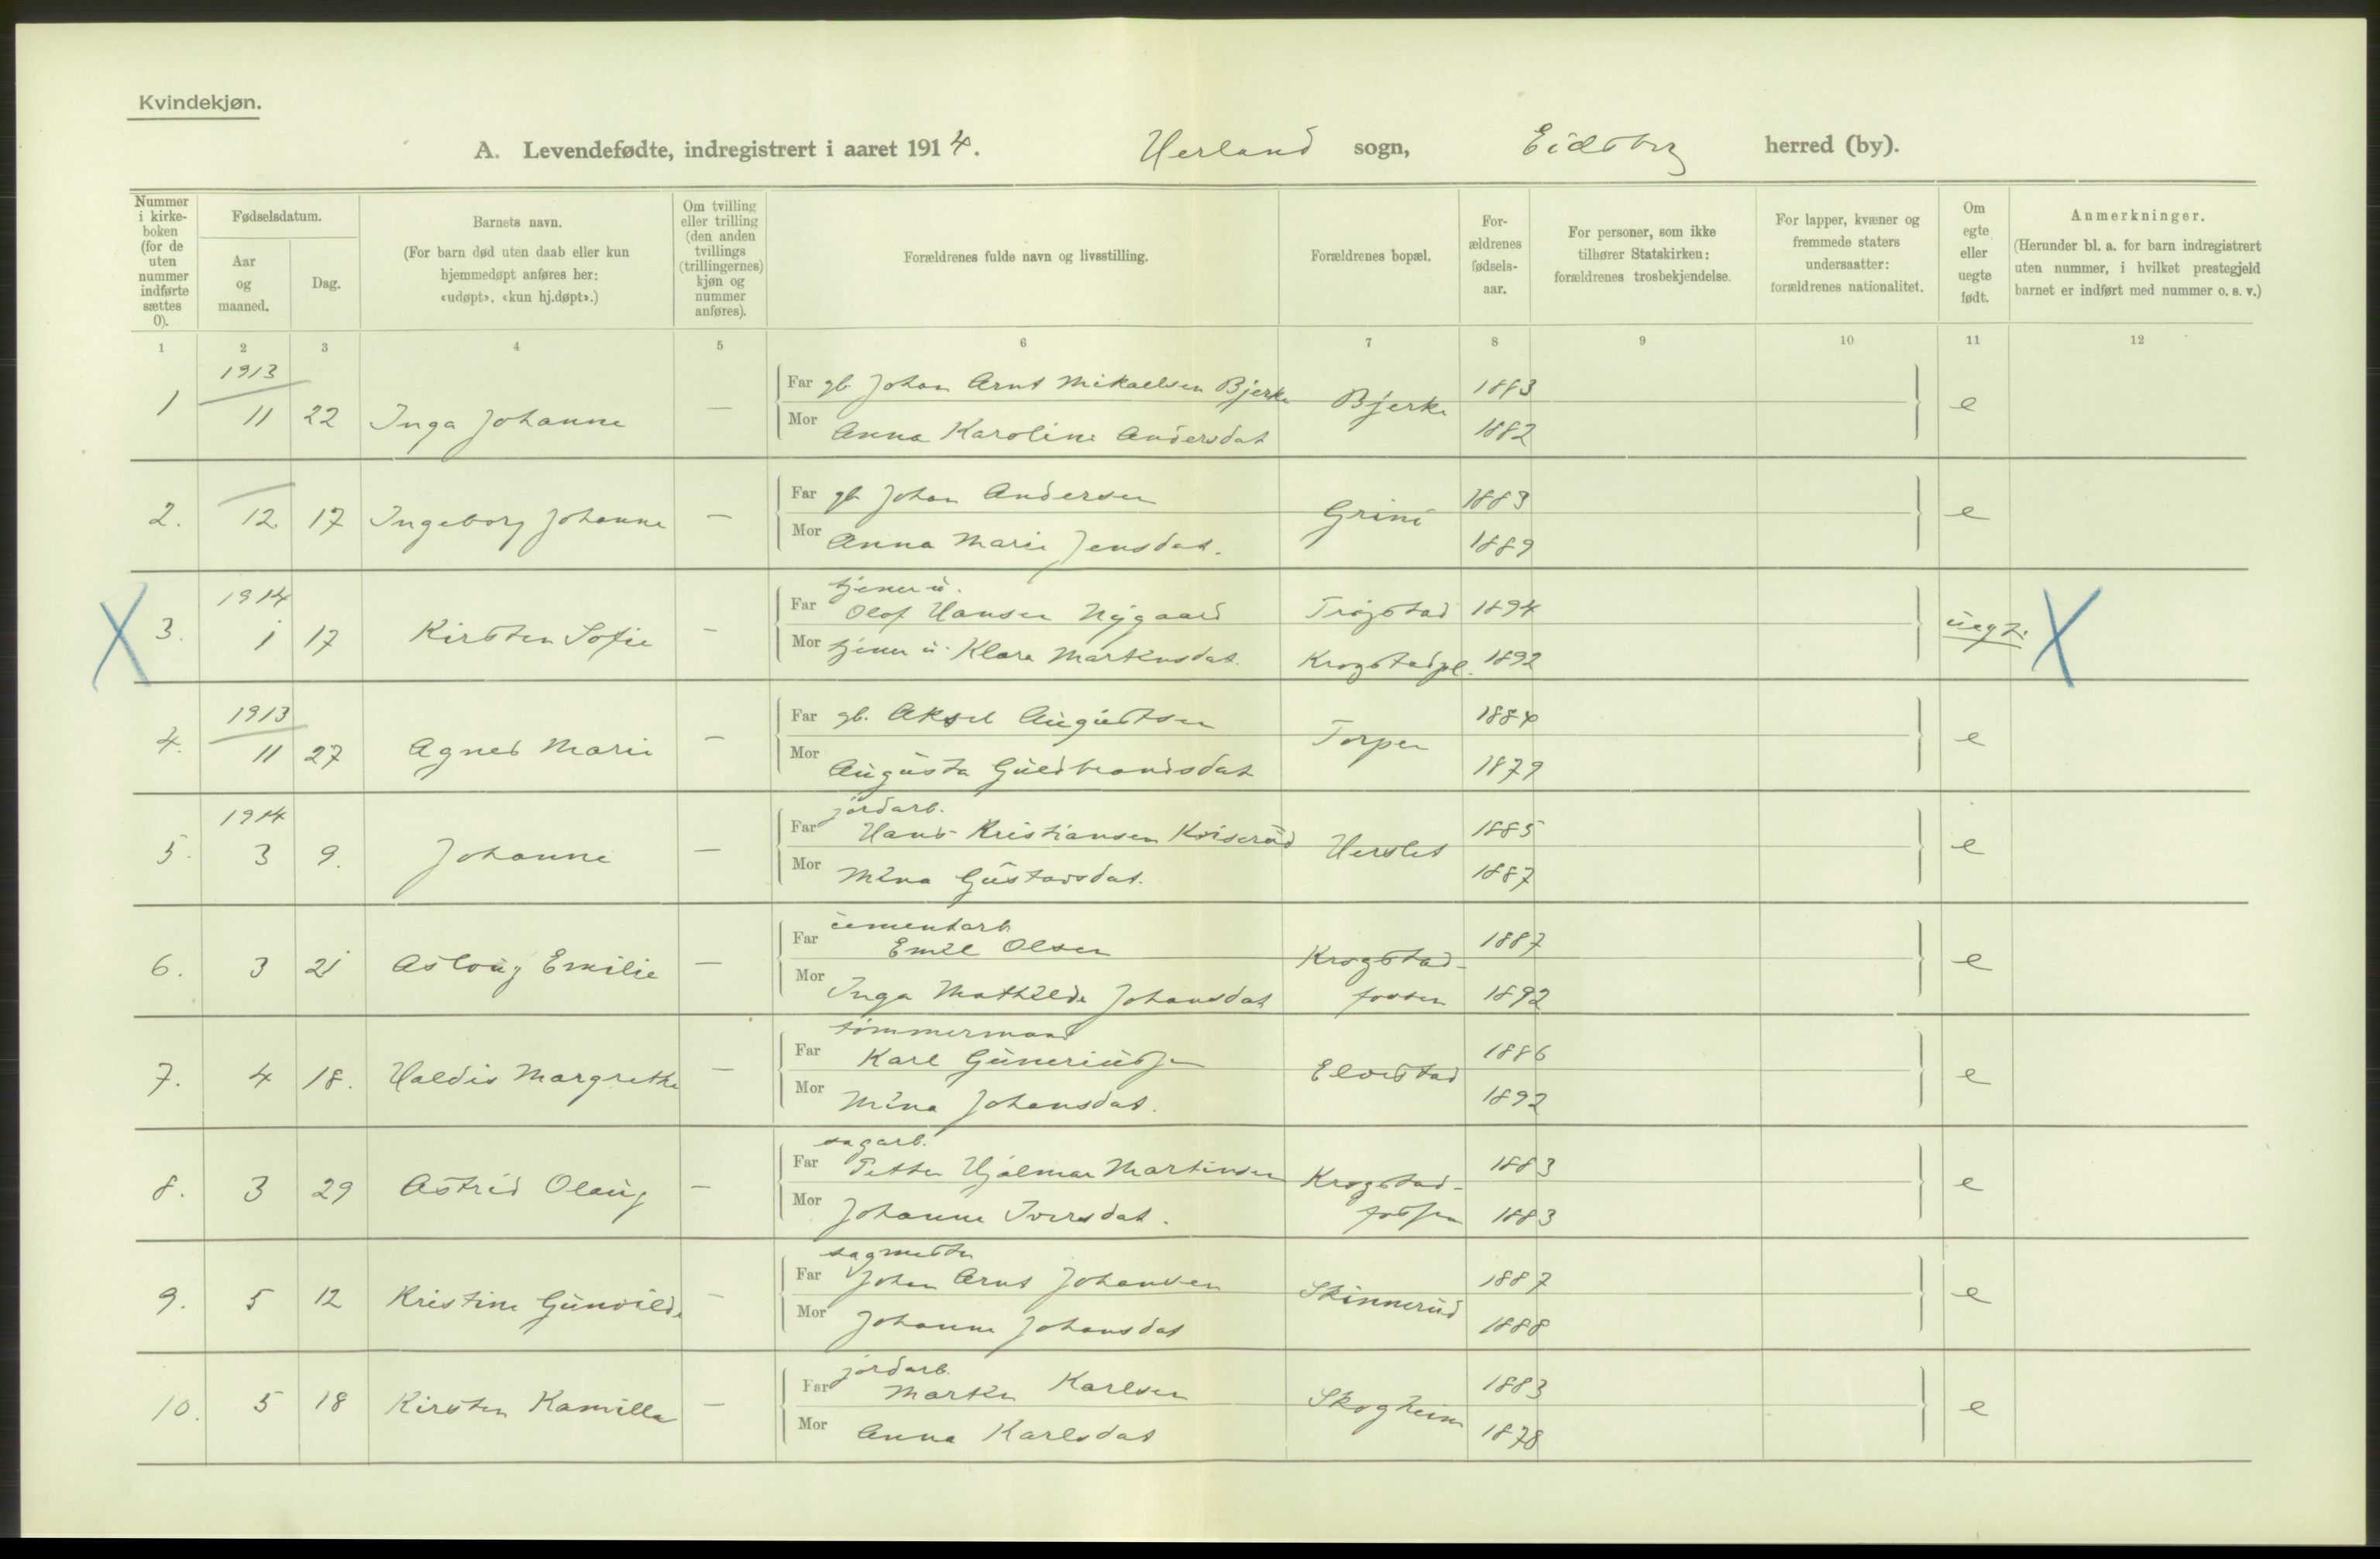 Kvindekjøn.
A. Levendefødte, indregistrert i aaret 1914. Herland sogn, Eidsberg herred (by).
Nummer i kirke-boken (for de uten nummer indførte sættes 0).
Fødselsdatum.
Aar og maaned.
Dag.
Barnets navn.
(For barn død uten daab eller kun hjemmedøpt anføres her: «udøpt», «kun hj.døpt».)
Om tvilling eller trilling (den anden tvillings (trillingernes) kjøn og nummer anføres).
Forældrenes fulde navn og livsstilling.
Forældrenes bopæl.
For-ældrenes fødsels-aar.
For personer, som ikke tilhører Statskirken: forældrenes trosbekjendelse.
For lapper, kvæner og fremmede staters undersaatter: forældrenes nationalitet.
Om egte eller uegte født.
Anmerkninger.
(Herunder bl. a. for barn indregistrert uten nummer, i hvilket prestegjeld barnet er indført med nummer o. s. v.)
1 2 3 4 5 6 7 8 9 10 11 12
1913
1 11 22 Inga Johanne — Far gb Johan Arnt Mikaelsen Bjerke Bjerke 1883 e
Mor Anna Karoline Andersdat 1882
2. 12 17 Ingeborg Johanne — Far gb Johan Andersen Grini 1883 e
Mor Anna Marie Jensdat. 1889
X 1914 tjener u.
3. 1 17 Kirsten Sofie — Far Olof Hansen Nygaard Trøgstad 1894 uegt. X
Mor tjener u. Klara Martinusdat. Krogstadpl. 1892
1913
4. 11 27 Agnes Marie — Far gb. Aksel Augustsen Torper 1884 e
Mor Augusta Guldbrandsdat 1879
1914 jordarb.
5. 3 9. Johanne — Far Hans Kristiansen Kviserud Herslet 1885 e
Mor Mina Gustavsdat. 1887
cementarb
6. 3 21 Aslaug Emilie — Far Emil Olsen Krogstad- 1887 e
Mor Inga Mathilde Johansdat fossen 1892
tømmermand
7. 4 18. Haldis Margrethe — Far Karl Guneriussen Elvestad 1886 e
Mor Mina Johansdat. 1892
sagarb.
8. 3 29 Astrid Olaug — Far Petter Hjalmar Martinsen Krogstad- 1883 e
Mor Johanne Iversdat. fossen 1883
sagmester
9. 5 12 Kristine Gunvilde — Far Johan Arnt Johansen Skinnerud 1887 e
Mor Johanne Johansdat 1888
jordarb.
10. 5 18 Kirsten Kamilla — Far Martin Karlsen Skogheim 1883 e
Mor Anna Karlsdat 1878